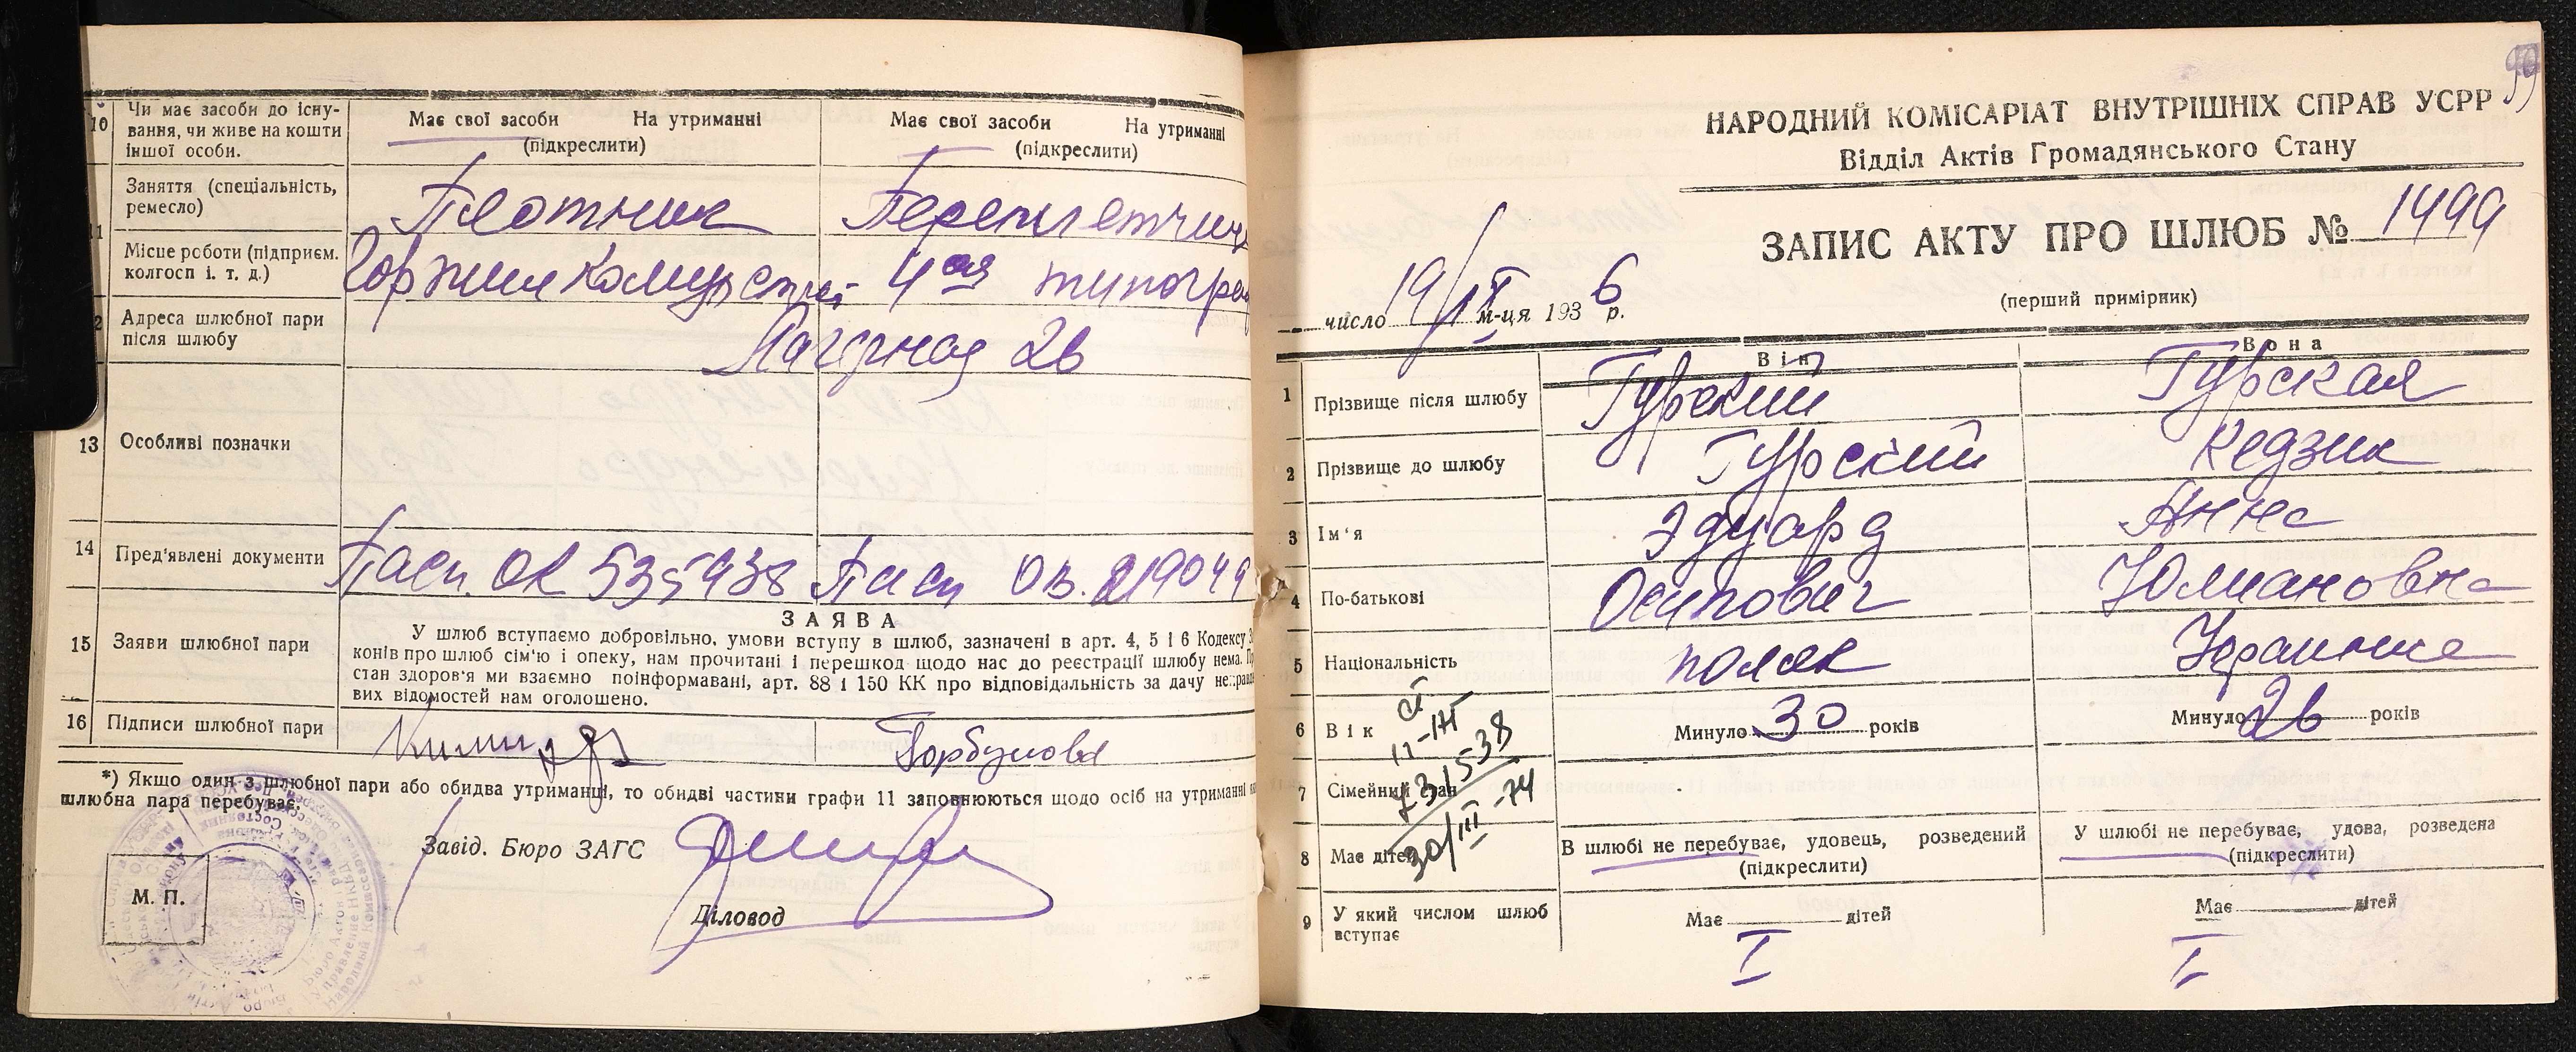 10 Чи має засоби до існу-
вання, чи живе на кошти
іншої особи.
Має свої засоби На утриманні
(підкреслити)
Має свої засоби На утриманні
(підкреслити)
Заняття (спеціальність,
ремесло)
Плотник
Місце роботи (підприєм.
колгосп і. т. д.)
4ая
Адреса шлюбної пари
після шлюбу
Лагерная 26
13 Особливі позначки
14 Пред'явлені документи
Пасп. ОК 535938 Пасп ОВ. 219049
15 Заяви шлюбної пари
ЗАЯВА
У шлюб вступаємо добровільно, умови вступу в шлюб, зазначені в арт. 4, 5 і 6 Кодексу
конів про шлюб сім'ю і опеку, нам прочитані і перешкод щодо нас до реєстрації шлюбу нема.
стан здоров'я ми взаємно поінформавані, арт. 88 і 150 КК про відповідальність за дачу
вих відомостей нам оголошено.
16 Підписи шлюбної пари
Горбунова
*) Якщо один з шлюбної пари або обидва утриманці, то обидві частини графи 11 заповнюються щодо осіб на утриманні
шлюбна пара перебуває.
Завід. Бюро ЗАГС
Діловод
М. П.
99
НАРОДНИЙ КОМІСАРІАТ ВНУТРІШНІХ СПРАВ УСРР
Відділ Актів Громадянського Стану
ЗАПИС АКТУ ПРО ШЛЮБ № 1499
(перший примірник)
число 19/IX м-ця 1936 р.
Він Вона
1 Прізвище після шлюбу Гурский Гурская
2 Прізвище до шлюбу Гурский Кедзик
3 Ім'я Эдуард Анна
4 По-батькові Осипович Юлиановна
5 Національність поляк Украинка
6 Вік Минуло 30 років Минуло 26 років
7 Сімейний стан
30/III-74
8 Має дітей
В шлюбі не перебуває, удовець, розведений
(підкреслити)
У шлюбі не перебуває, удова, розведена
(підкреслити)
9 У який числом шлюб
вступає
Має дітей
I
Має дітей
I